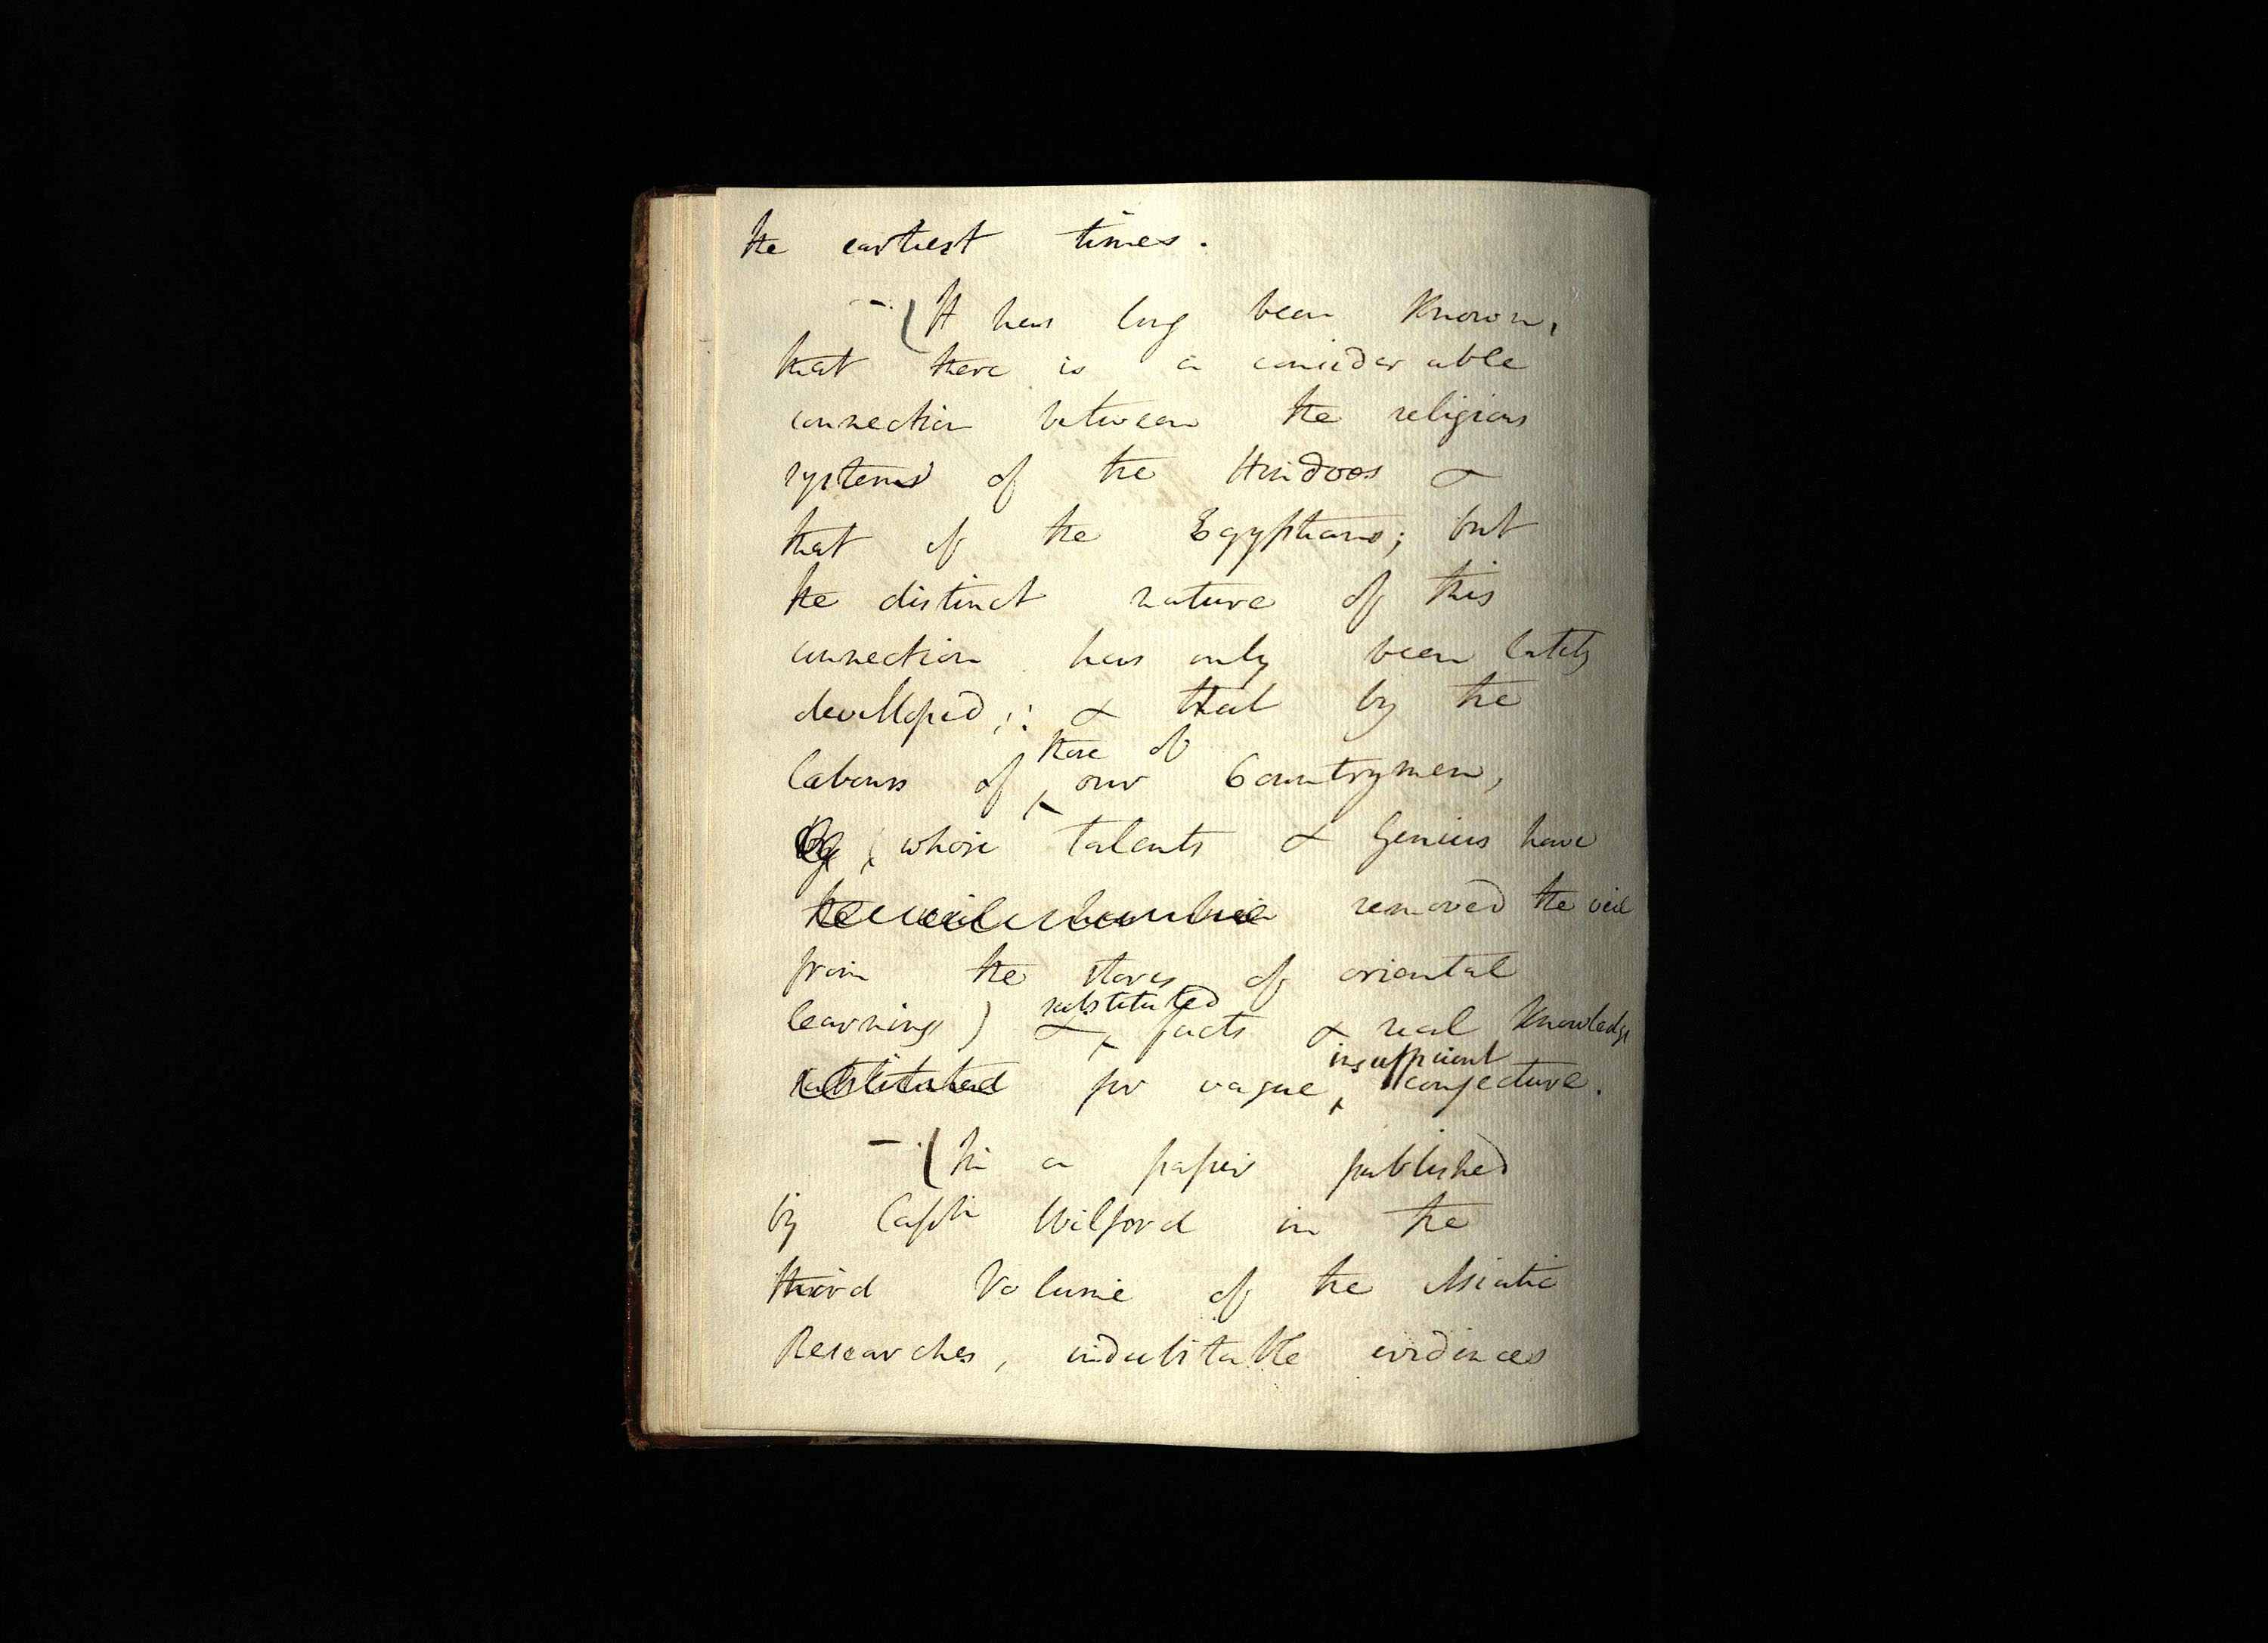 the earliest times.
-. (It has long been known,
that there is a consider able
connection between the religious
systems of the Hindoos &
that of the Egyptians; but
the distinct nature of this
connection has only been lately
developed; & that by the
those of
labours of ^ our Countrymen,
(whose talents & Genius have
removed the veil
from the stores of oriental
substituted
learning) & ^ facts & real knowledge
insufficient
substituted for vague ^ conjecture.
-. (In a paper published
by Captn Wilford in the
third Volume of the Asiatic
Researches, indubitable evidences